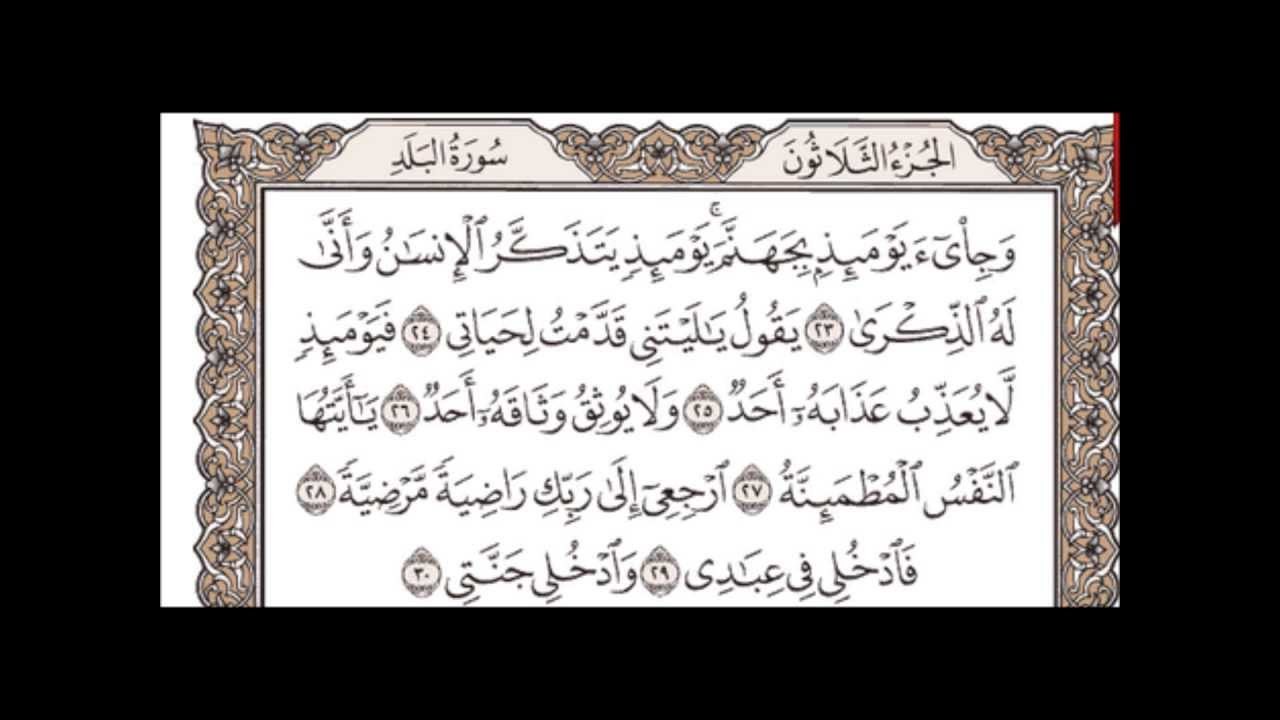 الجُزْءُ الثَّلَاثُونَ
سُورَةُ البَلَدِ
وَجِا۟ىٓءَ يَوْمَئِذِۭ بِجَهَنَّمَۚ يَوْمَئِذٖ يَتَذَكَّرُ ٱلْإِنسَٰنُ وَأَنَّىٰ
لَهُ ٱلذِّكْرَىٰ ٢٣ يَقُولُ يَٰلَيْتَنِى قَدَّمْتُ لِحَيَاتِى ٢٤ فَيَوْمَئِذٖ
لَّا يُعَذِّبُ عَذَابَهُۥٓ أَحَدٞ ٢٥ وَلَا يُوثِقُ وَثَاقَهُۥٓ أَحَدٞ ٢٦ يَٰٓأَيَّتُهَا
ٱلنَّفْسُ ٱلْمُطْمَئِنَّةُ ٢٧ ٱرْجِعِىٓ إِلَىٰ رَبِّكِ رَاضِيَةٗ مَّرْضِيَّةٗ ٢٨
فَٱدْخُلِى فِى عِبَٰدِى ٢٩ وَٱدْخُلِى جَنَّتِى ٣٠